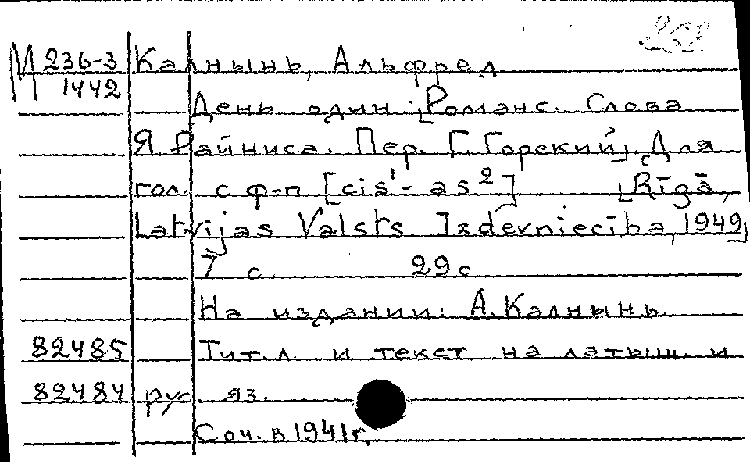 М 236-3 Калнынь, Альфред
1442
День один. Романс. Слова
Я. Райниса. Пер. Г. Горский. Для
гол. с ф-п [cis¹- as²] Rīgā,
Latvijas Valsts Izdevniecība, 1949
7 с. 29 с
На издании: А. Калнынь.
82485 Тит. л. и текст на латыш. и
82484 рус. яз.
Соч. в 1941 г.